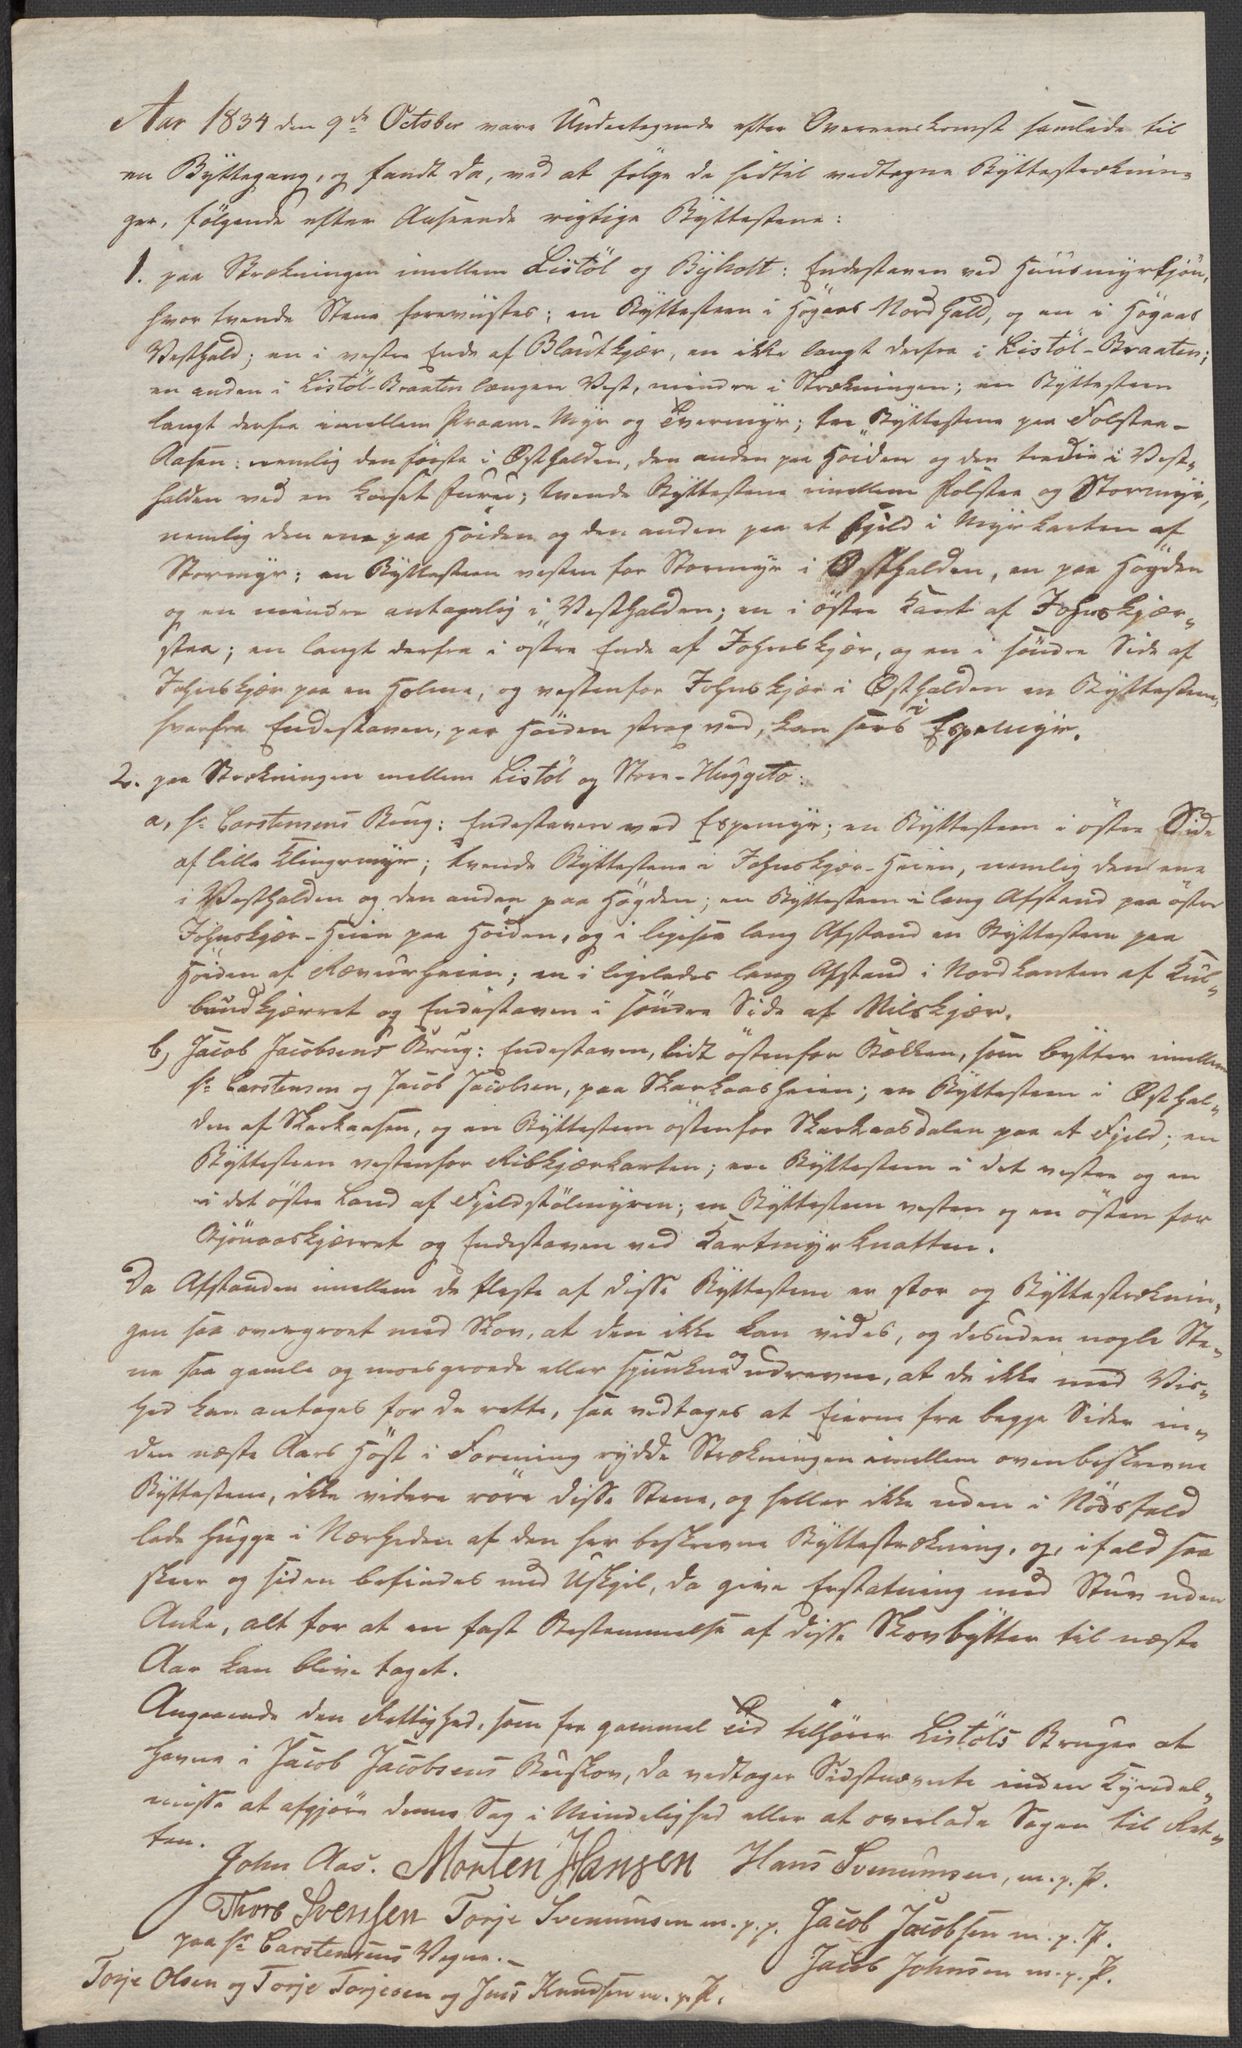 Aar 1834 den 9de October vare Undertegnede efter Overeenskomst samlede til
en Byttegang, og fandt da, ved at følge de hidtil vedtagne Byttestræknin-
ger, følgende efter Anseende rigtige Byttestene:
1. paa Strækningen imellem Listöl og Byholt: Endestaven ved Huusmyrkjön,
hvor tvende Stene foreviistes; en Byttesteen i Högaas Nordhald, og en i Högaas
Vesthald; en i vestre Ende af Blautkjær, en ikke langt derfra i Listöl-Braaten;
en anden i Listöl-Braaten længere Vest, mindre i Strækningen; en Byttesteen
langt derfra imellem Praam-Myr og Tvermyr; tre Byttestene paa Folstea-
Aasen: nemlig den første i Østhalden, den anden paa Høiden og den tredie i Vest-
halden ved en korset Furu; tvende Byttestene imellem Folstea og Stormyr,
nemlig den ene paa Høiden og den anden paa et Fjeld i Myrkanten af
Stormyr; en Byttesteen vesten for Stormyr i Østhalden, en paa Högden
og en mindre antagelig i Vesthalden; en i östre Kant af Johnskjær-
stea; en langt derfra i østre Ende af Johnskjær, og en i söndre Side af
Johnskjær paa en Holme, og vestenfor Johnskjær i Østhalden en Byttesteen,
hvorfra Endestaven, paa Höiden strax ved, kan sees i Espemyr.
2. paa Strækningen mellem Listöl og Store-Huggeto:
a, Hr Carstensens Brug: Endestaven ved Espemyr; en Byttesteen i östre Side
af lille Klingrmyr; tvende Byttestene i Johnskjær-Heien, nemlig den ene
i Vesthalden og den anden paa Högden; en Byttesteen i lang Afstand paa östre
Johnskjær-Heien paa Höiden, og i ligesaa lang Afstand en Byttesteen paa
Höiden af Rævurheien; en i ligeledes lang Afstand i Nordkanten af Kul-
bundkjærret og Endestaven i söndre Side af Nilskjær.
b, Jacob Jacobsens Brug: Endestaven, lidt östenfor Bækken, som bytter imellem
Hr Carstensen og Jacob Jacobsen, paa Skarkaasheien; en Byttesteen i Østhal-
den af Skarkaasen, og en Byttesteen östenfor Skarkaasdalen paa et Fjeld; en
Byttesteen vestenfor Ribkjærkanten; en Byttesteen i det vestre og en
i det östre Land af Fjeldstölmyren; en Byttesteen vesten og en östen for
Björnaaskjærret og Endestaven ved Tartmyrknatten.
Da Afstanden imellem de fleste af disse Byttestene er stor og Byttestræknin-
gen saa overgroet med Skov, at den ikke kan vides, og desuden nogle Ste-
ne saa gamle og moesgroede eller sjunkne og udrevne, at de ikke med Vis-
hed kan antages for de rette, saa vedtages at Eierne fra begge Sider in-
den næste Aars Höst i Forening rydde Strækningen imellem ovenbeskrevne
Byttestene, ikke videre röre disse Stene, og heller ikke uden i Nödsfald
lade hugge i Nærheden af den her beskrevne Byttestrækning, og, ifald saa
skeer og siden befindes med Uskjel, da give Erstatning med Stuv uden
Anke, alt for at en fast Bestemmelse af disse Skovbytter til næste
Aar kan blive taget.
Angaaende den Rettighed, som fra gammel Tid tilhører Listöls Bruger at
havne i Jacob Jacobsens Buskov, da vedtager Sidstnævnte inden Kyndel-
misse at afgjöre denne Sag i Mindelighed eller at overlade Sagen til Ret-
ten.
John Aas. Morten Hansen Hans Svenumsen, m. p. P.
Thore Svensen Torje Svenumsen m. p. p. Jacob Jacobsen m. p. P.
paa Hr Carstensens Vegne.- Jacob Johnsen m. p. P.
Torje Olsen og Torje Torjesen og Jens Knudsen m. p. P.